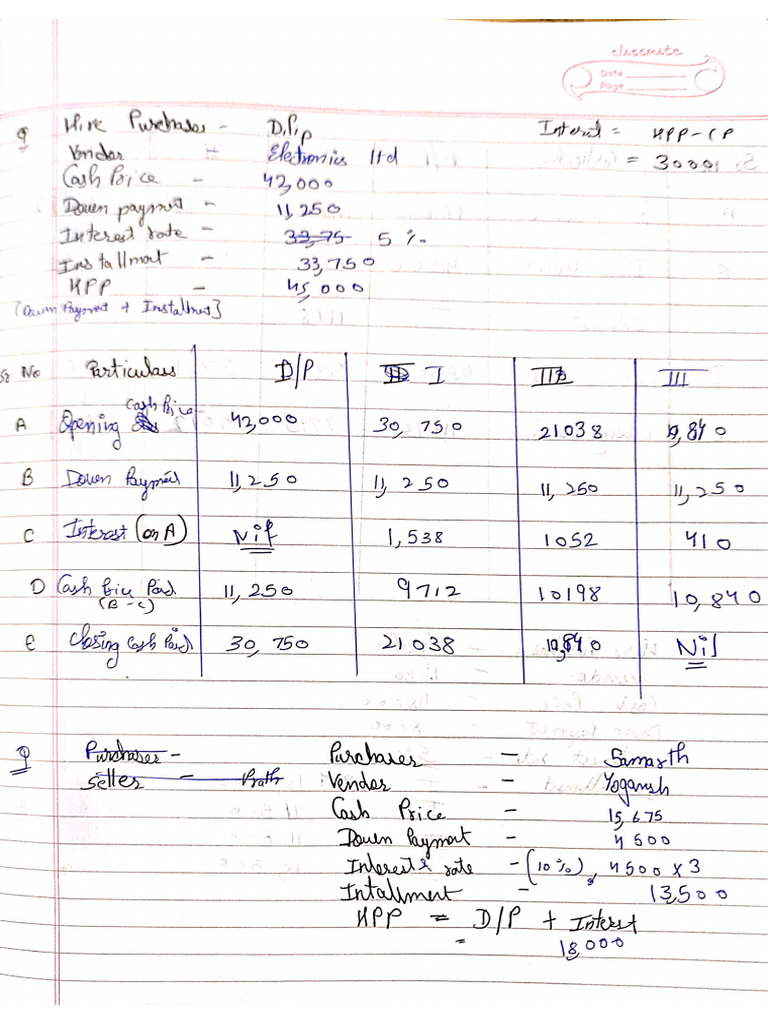 classmate
Date
Page
Q Hire Purchaser - D.Pip Interest = HPP - CP
Vendor Electronics ltd = 3000
Cash Price - 42,000
Down payment - 11,250
Interest rate - 33,75 5 %
Installment - 33,750
HPP - 45,000
[Down Payment + Installment]
Sr No Particulars D/P I II III
A Opening Cash Price 42,000 30,750 21038 10,840
B Down Payment 11,250 11,250 11,250 11,250
C Interest (on A) Nil 1,538 1052 410
D Cash Price Paid (B-C) 11,250 9712 10198 10,840
E Closing Cash Paid 30,750 21038 10,840 Nil
Q Purchaser - Purchaser - Samarth
Seller - Parth Vendor - Yogansh
Cash Price - 15,675
Down Payment - 4500
Interest rate - (10%), 4500 x 3
Intallment - 13,500
HPP = D/P + Interst
= 18,000